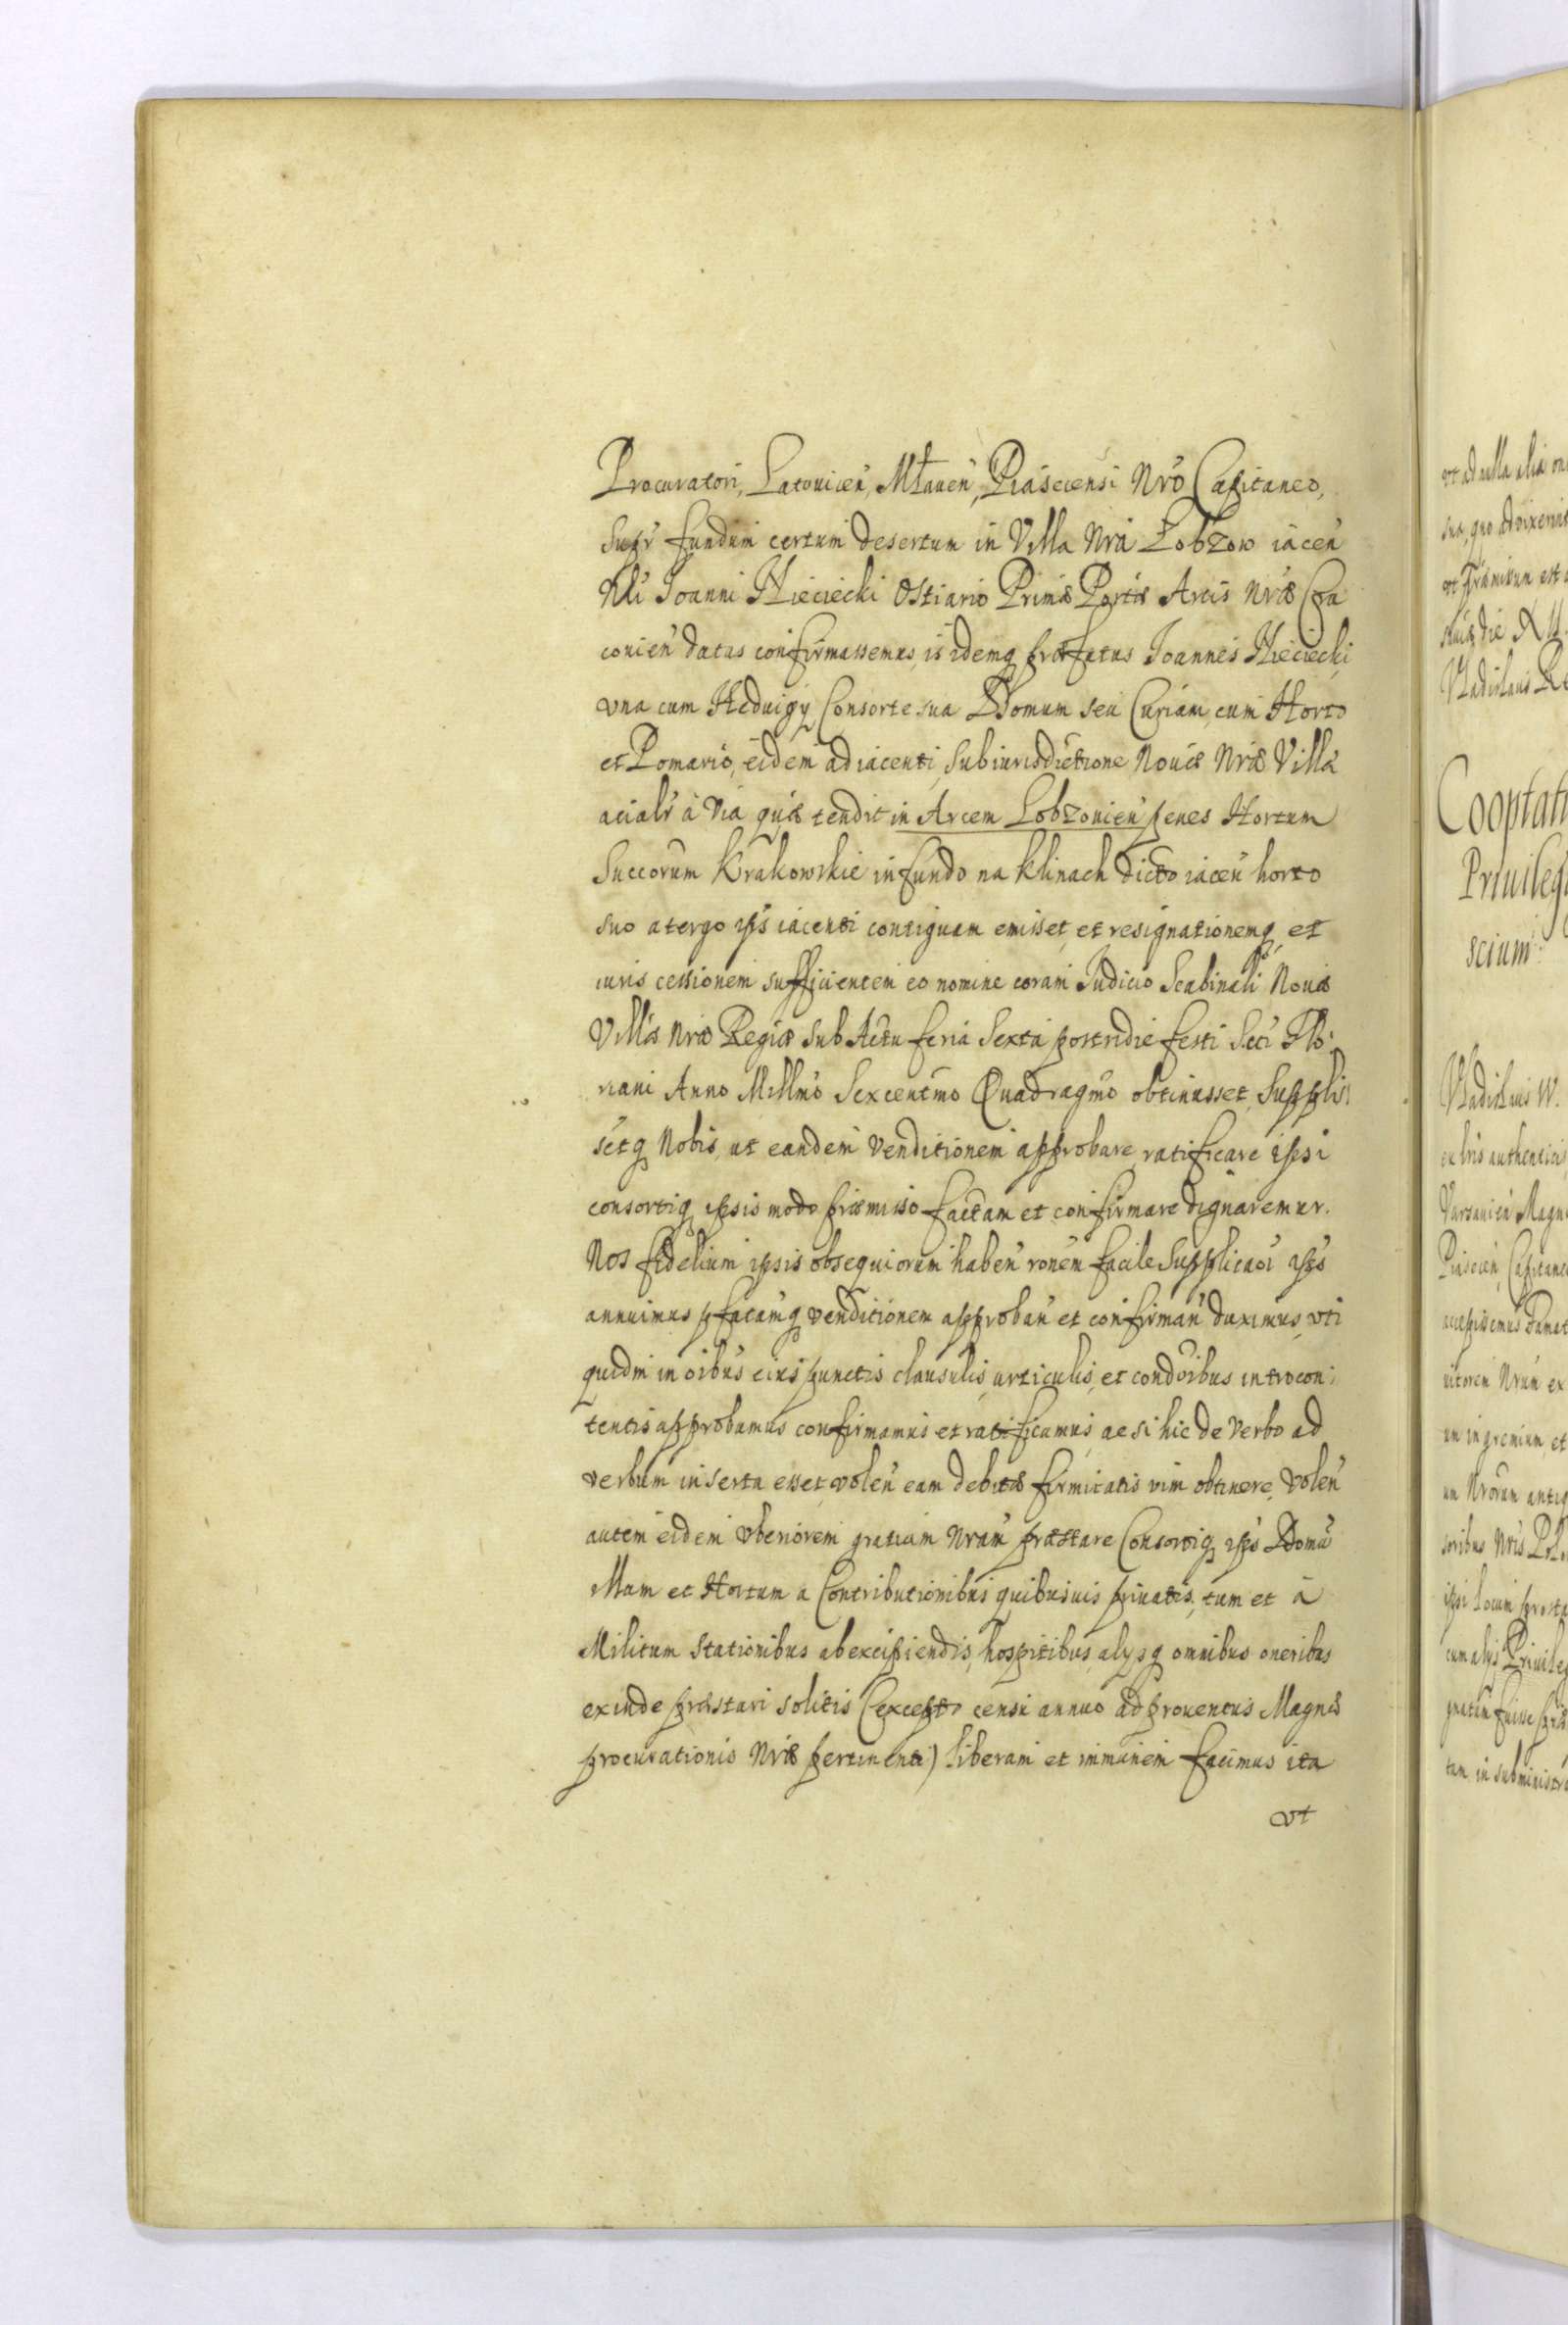 Procuratori, Latouicen̄, Mławen̄, Piasecensi Nr̄o Capitaneo,
supr̄ fundum certum desertum in Villa Nr̄a Łobzow iacen̄
Nli Joanni Hieciecki Ostiario Primæ Portæ Arcis Nr̄æ Cra
couien̄ datas confirmassemus, is idemq præfatus Joannes Hieciecki,
vna cum Heduigy Consorte sua Domum seu Curiam, cum Horto
et Pomario, eidem adiacenti, sub iurisdictione Nouæ Nr̄æ Villæ
acialr̄ à via quæ tendit in Arcem Lobzouien̄ penes Hortum
Succorum Krakowskie in fundo na klinach dicto iacen̄ horto
suo a tergo ips̄ iacenti contiguam emisset, et resignationemq et
iuris cessionem sufficientem eo nomine coram Judicio Scabinali Nouæ
Villæ Nr̄æ Regiæ sub Actu feria Sexta postridie festi Scti Flo:
riani Anno Millmo Sexcentmo Quadragmo obtinuisset, suppli:
setq Nobis, ut eandem venditionem approbare, ratificare ipsi
consortiq ipsis modo præmisso factam et confirmare dignaremur.
Nos fidelium ipsis obsequiorum haben̄ ronem facile supplicaoi ips̄s
annuimus pfatamq venditionem approban̄ et confirman̄ duximus, vti
quidm in oibus eius punctis clausulis, articulis, et condoibus introcon:
tentis approbamus confirmamus et ratificamus, ac si hic de verbo ad
verbum inserta esset, volen̄ eam debitæ firmitatis vim obtinere, Volen̄
autem eidem vberiorem gratiam Nram præstare Consortiq ips̄s Domū
illam et Hortum a Contributionibus quibusuis priuatis, tum et à
Militum stationibus ab excipiendis, hospitibus, alysq omnibus oneribus
exinde præstari solitis (excepto censu annuo ad prouentus Magnæ
procurationis Nr̄æ pertinenti) liberam et immunem facimus ita
vt
Cooptati
Priuileg
scium